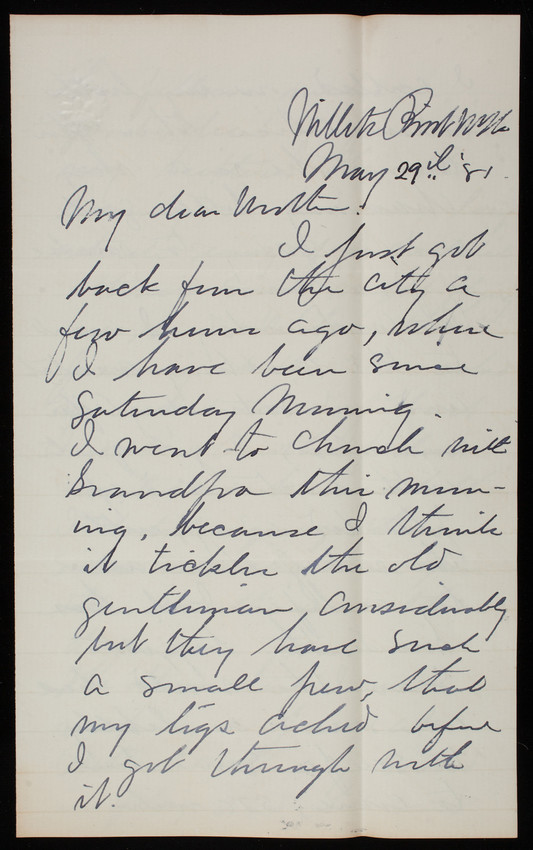 Willets Point N.Y.
May 29th '81.
My dear Mother:
I just got
back from the city a
few hours ago, where
I have been since
Saturday Morning.
I went to church with
Grandpa this morn-
ing, because I think
it tickles the old
gentleman, considerably
but they have such
a small pew, that
my legs ached before
I got through with
it.